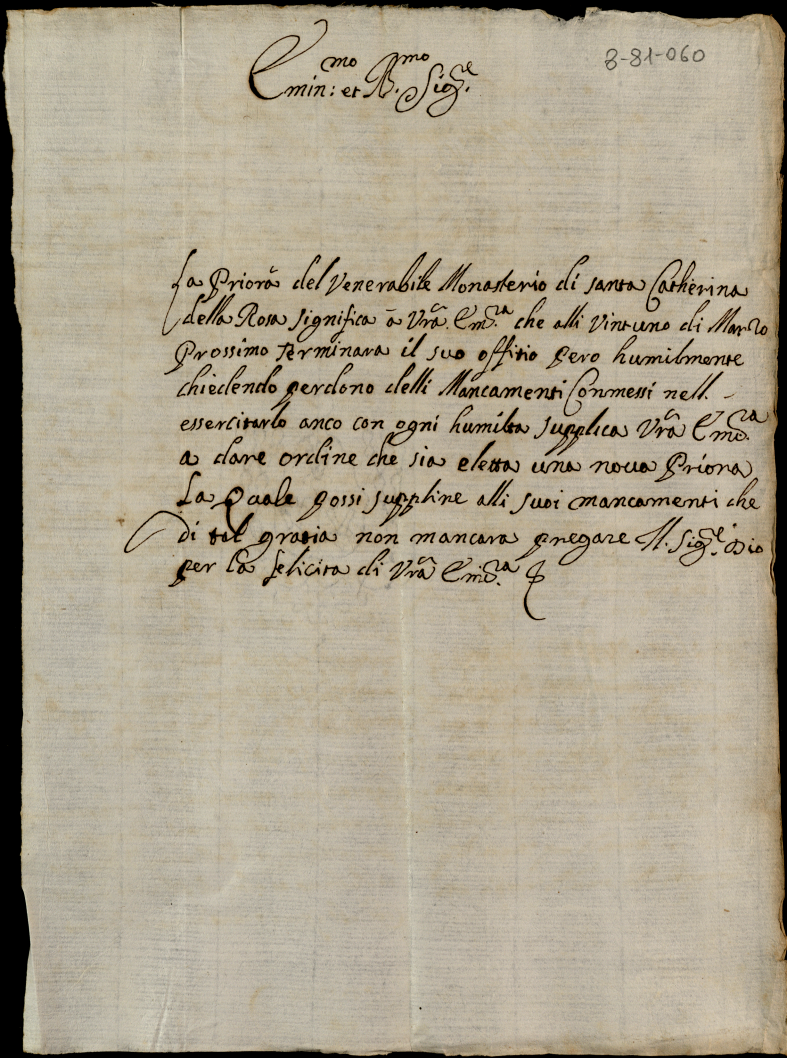 8-81-060
Emin:mo et R.mo Sig.re
La Priorã del Venerabile Monasterio di santa Catherina
della Rosa significa à Vrã Em.ra che alli vintuno di Marzo
Prossimo Terminara il suo offitio pero humilmente
chiedendo perdono delli Mancamenti Conmessi nell
essercitarlo anco con ogni humilta supplica Vrã Em.ra
a dare ordine che sia eletta una noua Priora
La Quale possi supplire alli suoi mancamenti che
di tal gratia non mancara pregare Il Sig.re Dio
per la felicita di Vrã Em.ra